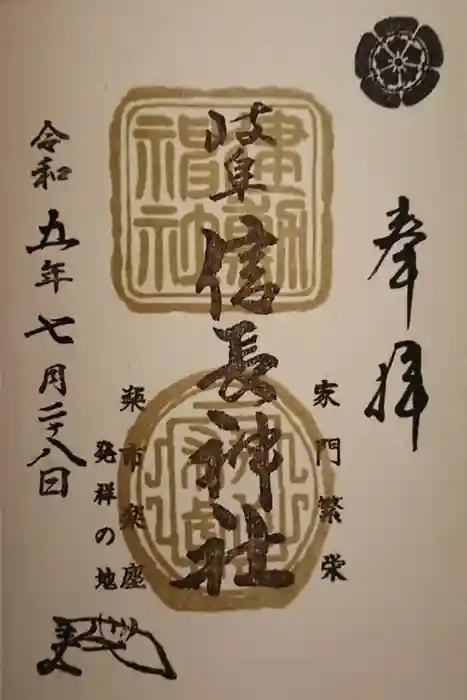 奉拝
家門繁栄
岐阜信長神社
建勲神社
楽市楽座
発祥の地
令和五年七月二十八日